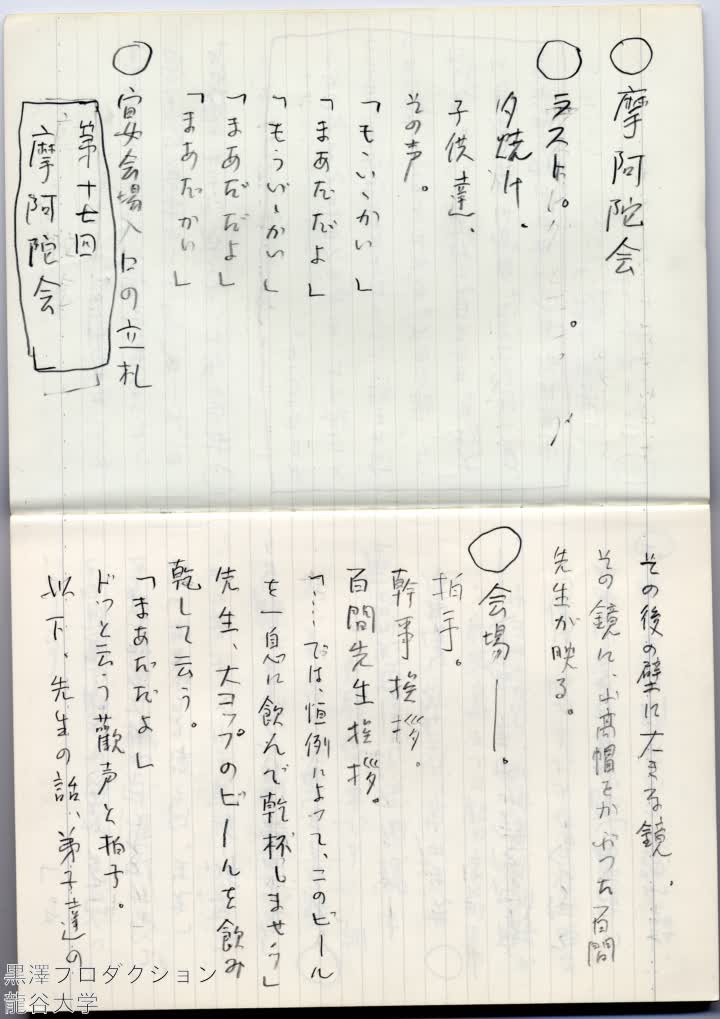 ○ 摩阿陀会
○ ラスト。
夕焼け、
子供達、
その声。
「もういゝかい」
「まあだだよ」
「もういゝかい」
「まあだだよ」
「まあだかい」
○ 宴会場入口の立札
第十七回
摩阿陀会
その後の壁に大きな鏡、
その鏡に、山高帽をかぶった百間
先生が映る。
○ 会場――。
拍手。
幹事挨拶。
百間先生挨拶。
「…では、恒例によって、このビール
を一息に飲んで乾杯しませう」
先生、大コップのビールを飲み
乾して云う。
「まあだだよ」
ドッと云う歡声と拍手。
以下、先生の話、弟子達の
黒澤プロダクション
龍谷大学